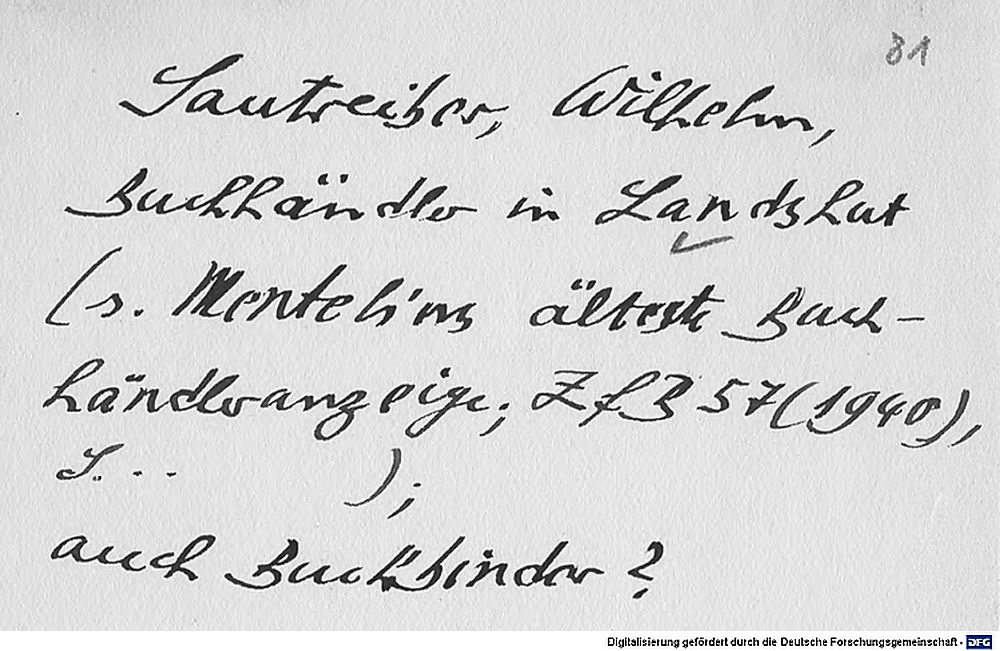 81
Sautreiber, Wilhelm,
Buchhändler in Landshut
(s. Mentelins älteste Buch-
händleranzeige; ZfB 57 (1940),
S. . . );
auch Buchbinder?
Digitalisierung gefördert durch die Deutsche Forschungsgemeinschaft - DFG